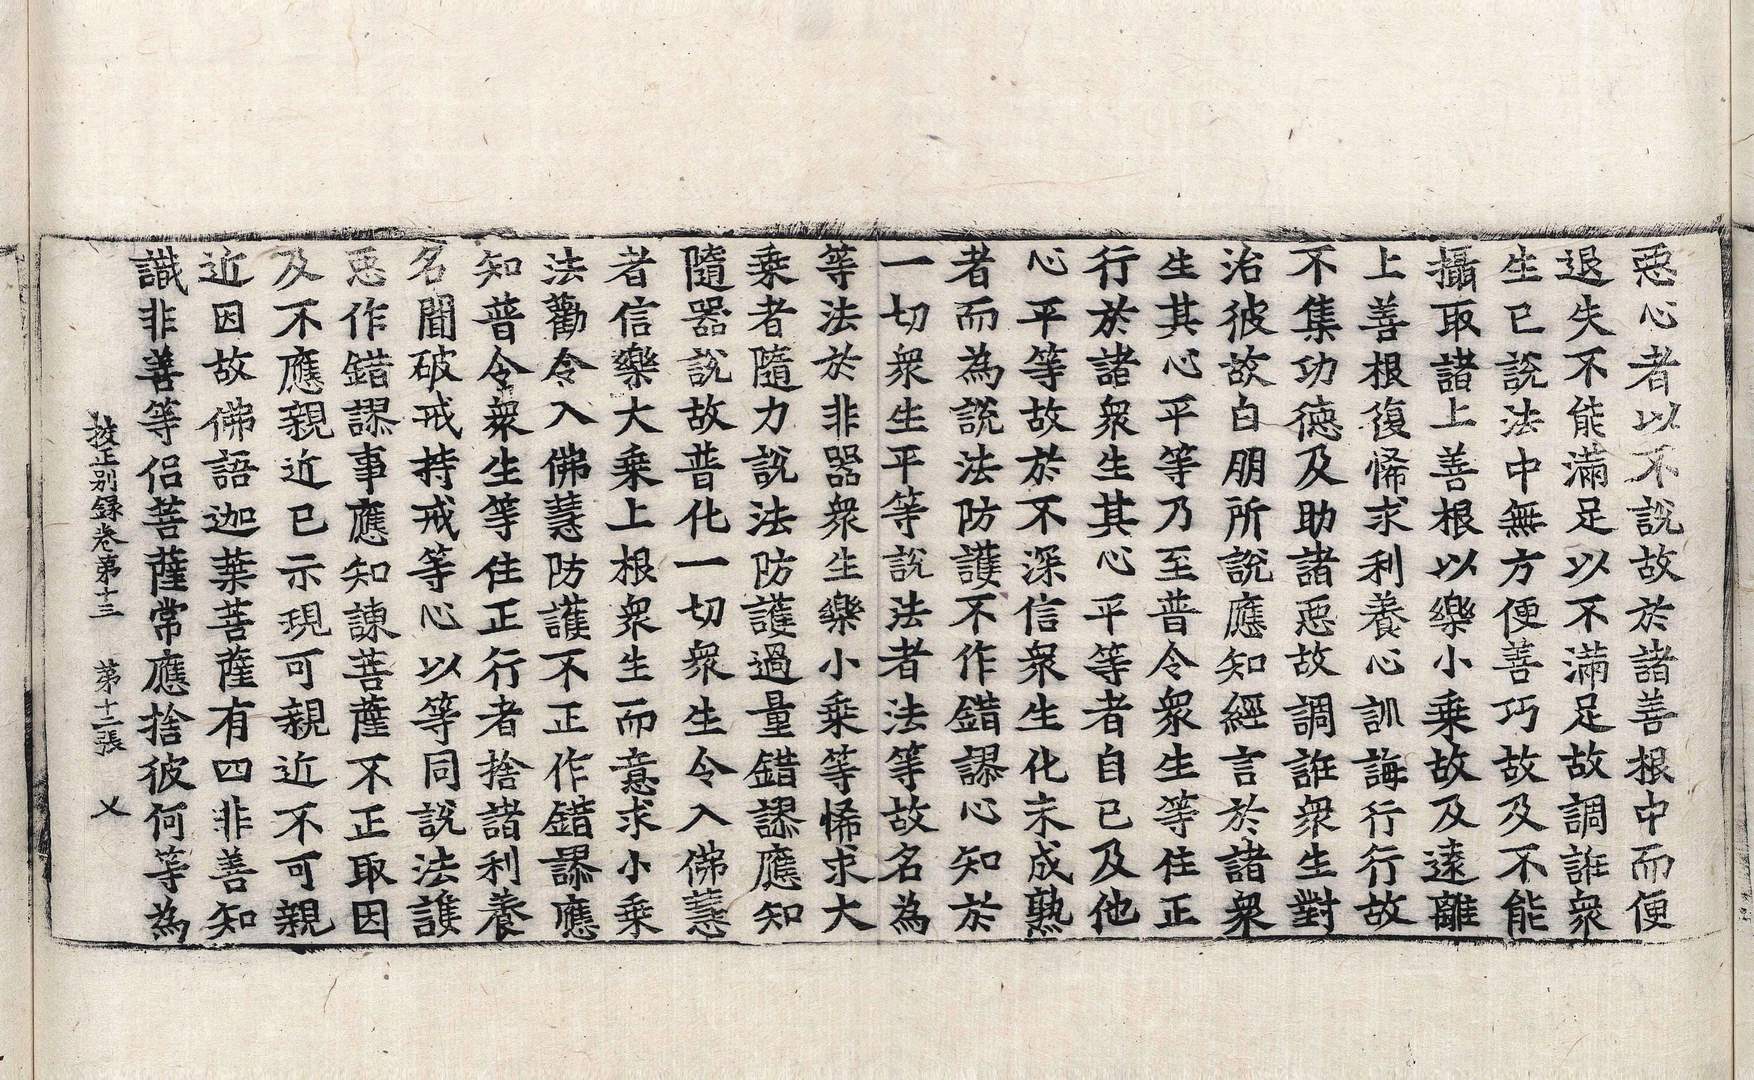 惡心者以不說故於諸善根中而便
退失不能滿足以不滿足故調誑衆
生已說法中無方便善巧故及不能
攝取諸上善根以樂小乗故及遠離
上善根復悕求利養心訓誨行行故
不集功德及助諸惡故調誑衆生對
治彼故白朋所說應知經言於諸衆
生其心平等乃至普令衆生等住正
行於諸衆生其心平等者自已及他
心平等故於不深信衆生化未成熟
者而為說法防護不作錯謬心知於
一切衆生平等說法者法等故名為
等法於非器衆生樂小乗等悕求大
乗者隨力說法防護過量錯謬應知
隨器說故普化一切衆生令入佛慧
者信樂大乗上根衆生而意求小乗
法勸令入佛慧防護不正作錯謬應
知普令衆生等住正行者捨諸利養
名聞破戒持戒等心以等同說法護
惡作錯謬事應知諫菩薩不正取因
及不應親近已示現可親近不可親
近因故佛語迦葉菩薩有四非善知
識非善等侣菩薩常應捨彼何等為
挍正别録卷第十三 第十二張 㐅